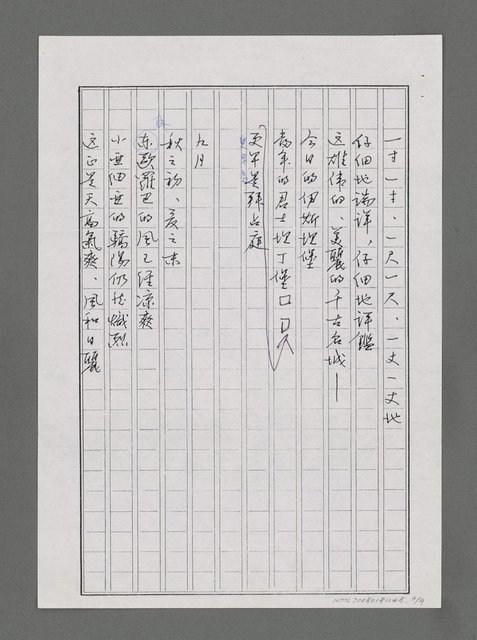 一寸一寸、一尺一尺、一丈一丈地
仔細地端详，仔細地评鑑
这雄伟的、美麗的千古名城—
今日的伊斯坦堡
當年的君士坦丁堡
更早是拜占庭
九月
秋之初、夏之末
东歐羅巴的风已经凉爽
小亚细亚的驕陽仍然熾烈
这正是天高氣爽、風和日麗
NMTL20080181148. 3/9